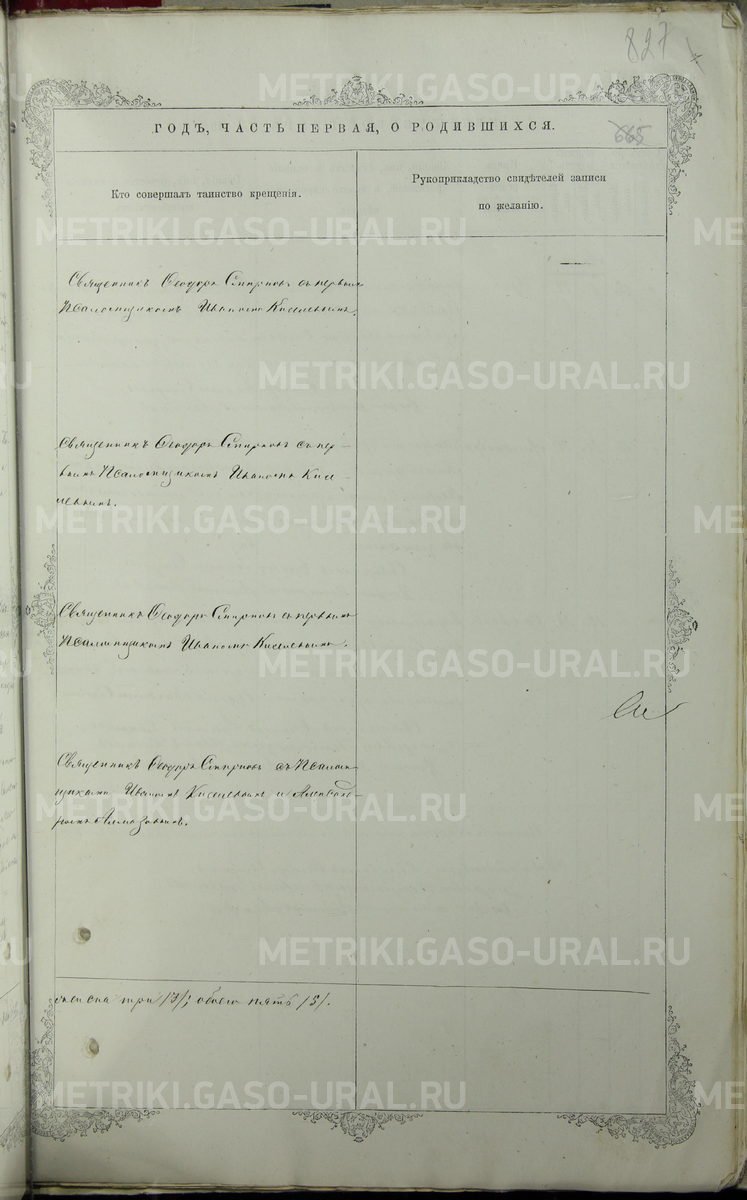 827
METRIKI.GASO-URAL.RU
ГОДЪ, ЧАСТЬ ПЕРВАЯ, О РОДИВШИХСЯ.
665
Кто совершалъ таинство крещенія.
Рукоприкладство свидѣтелей записи
по желанію.
METRIKI.GASO-URAL.RU
Священникъ Ѳеодоръ Смирновъ съ первымъ
Псаломщикомъ Иваномъ Киселевымъ.
METRIKI.GASO-URAL.RU
Священникъ Ѳеодоръ Смирновъ съ пер-
вымъ Псаломщикомъ Иваномъ Кисе-
левымъ.
METRIKI.GASO-URAL.RU
Священникъ Ѳеодоръ Смирновъ съ первымъ
Псаломщикомъ Иваномъ Киселевымъ.
METRIKI.GASO-URAL.RU
Священникъ Ѳеодоръ Смирновъ съ Псалом-
щиками Иваномъ Киселевымъ и Александ-
ромъ Алмазовымъ.
METRIKI.GASO-URAL.RU
METRIKI.GASO-URAL.RU
три /3/; обоего пять /5/.
METRIKI.GASO-URAL.RU